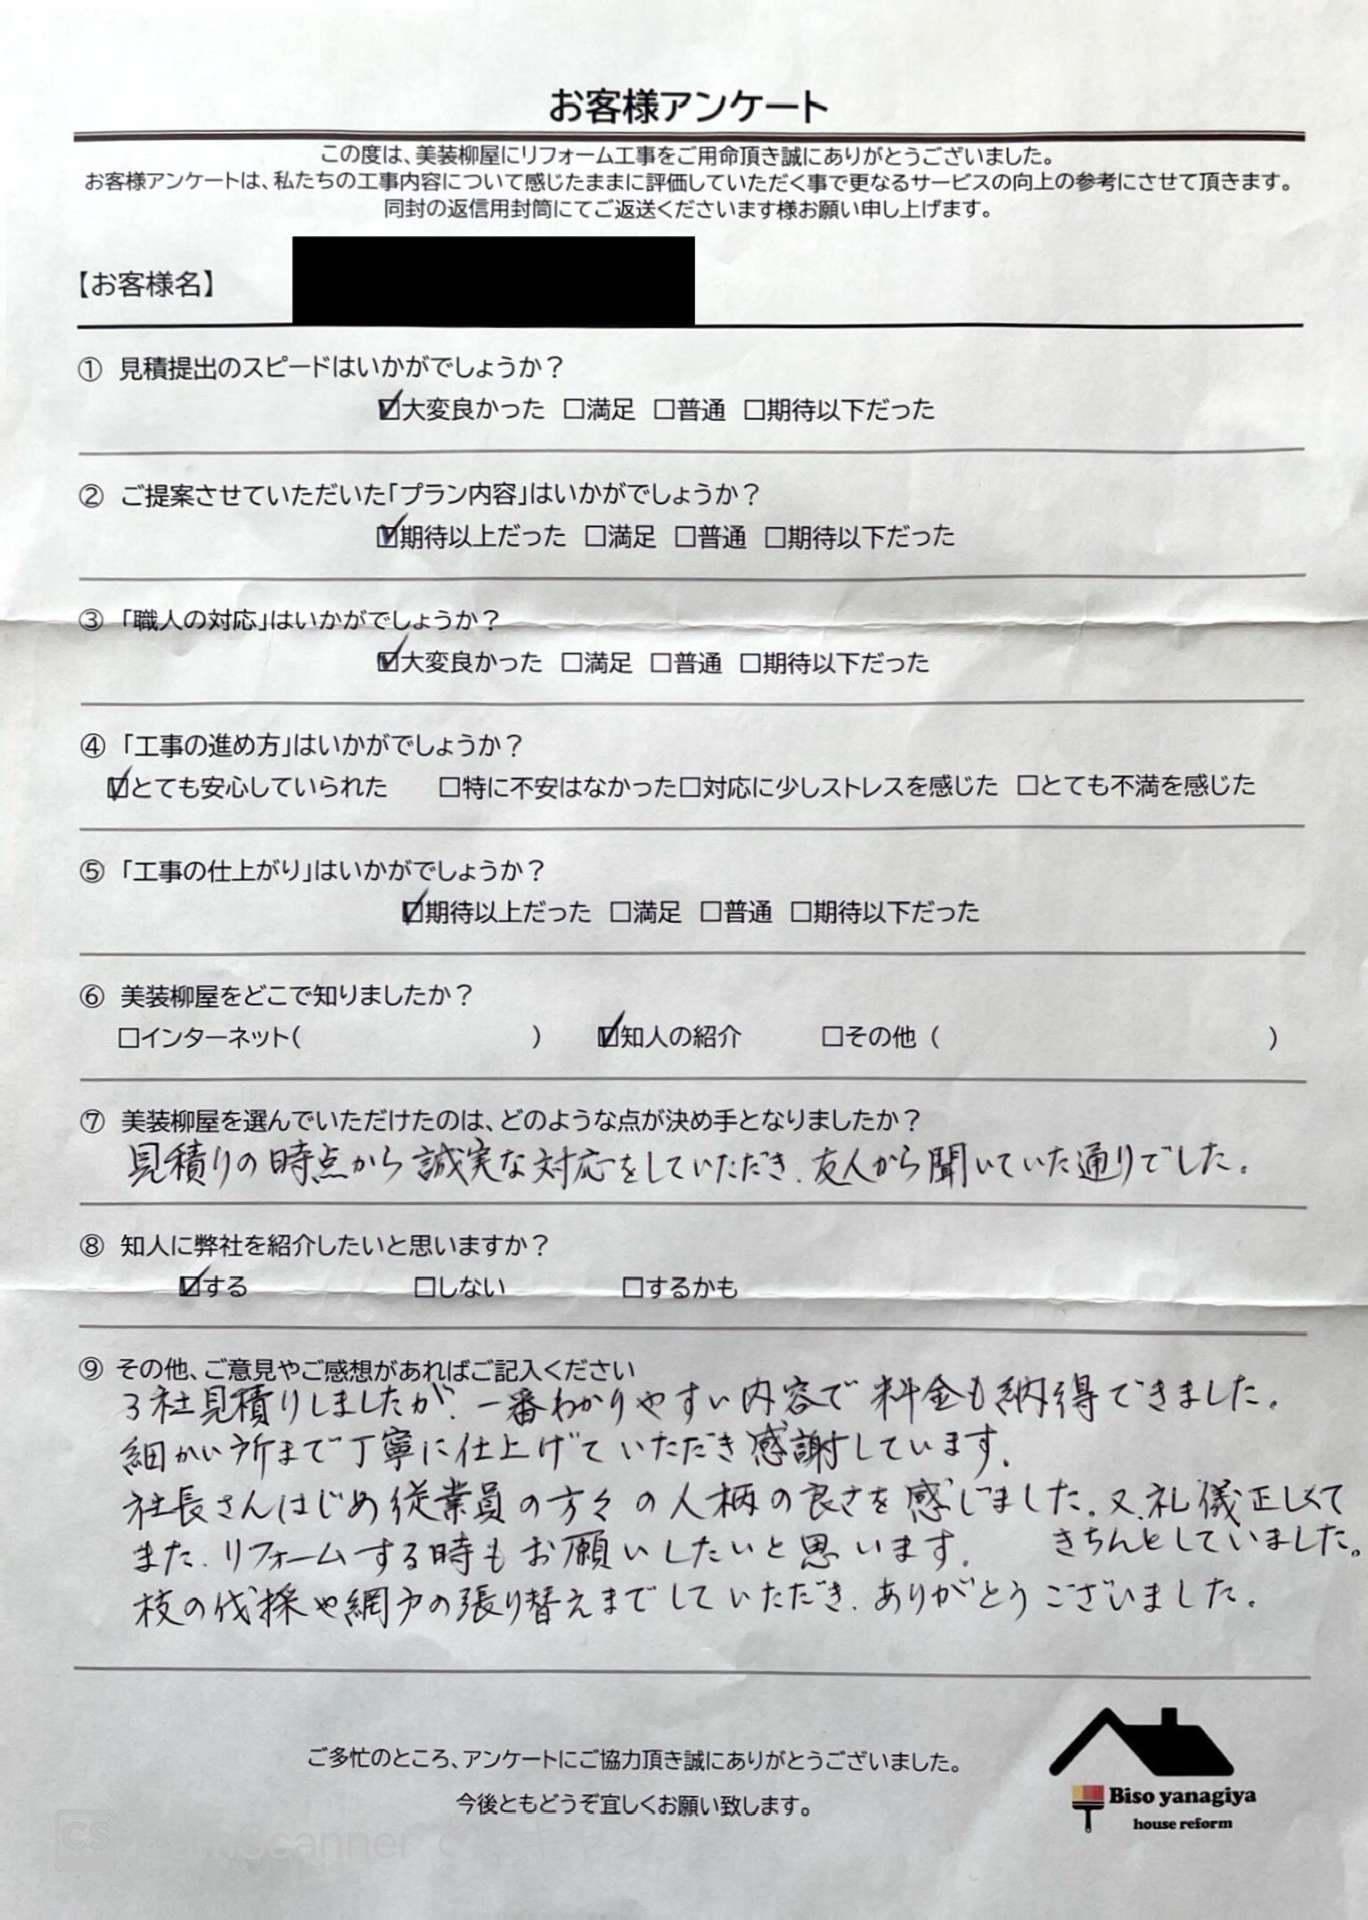 お客様アンケート
この度は、美装柳屋にリフォーム工事をご用命頂き誠にありがとうございました。
お客様アンケートは、私たちの工事内容について感じたままに評価していただく事で更なるサービスの向上の参考にさせて頂きます。
同封の返信用封筒にてご返送くださいます様お願い申し上げます。
【お客様名】
① 見積提出のスピードはいかがでしょうか？
☑大変良かった □満足 □普通 □期待以下だった
② ご提案させていただいた「プラン内容」はいかがでしょうか？
☑期待以上だった □満足 □普通 □期待以下だった
③ 「職人の対応」はいかがでしょうか？
☑大変良かった □満足 □普通 □期待以下だった
④ 「工事の進め方」はいかがでしょうか？
☑とても安心していられた □特に不安はなかった□対応に少しストレスを感じた □とても不満を感じた
⑤ 「工事の仕上がり」はいかがでしょうか？
☑期待以上だった □満足 □普通 □期待以下だった
⑥ 美装柳屋をどこで知りましたか？
□インターネット( ) ☑知人の紹介 □その他 ( )
⑦ 美装柳屋を選んでいただけたのは、どのような点が決め手となりましたか？
見積りの時点から誠実な対応をしていただき、友人から聞いていた通りでした。
⑧ 知人に弊社を紹介したいと思いますか？
☑する □しない □するかも
⑨ その他、ご意見やご感想があればご記入ください
3社見積りしましたが、一番わかりやすい内容で料金も納得できました。
細かい所まで丁寧に仕上げていただき感謝しています。
社長さんはじめ従業員の方々の人柄の良さを感じました。又、礼儀正しくて
きちんとしていました。
また、リフォームする時もお願いしたいと思います。
枝の伐採や網戸の張り替えまでしていただき、ありがとうございました。
ご多忙のところ、アンケートにご協力頂き誠にありがとうございました。
今後ともどうぞ宜しくお願い致します。
Biso yanagiya
house reform